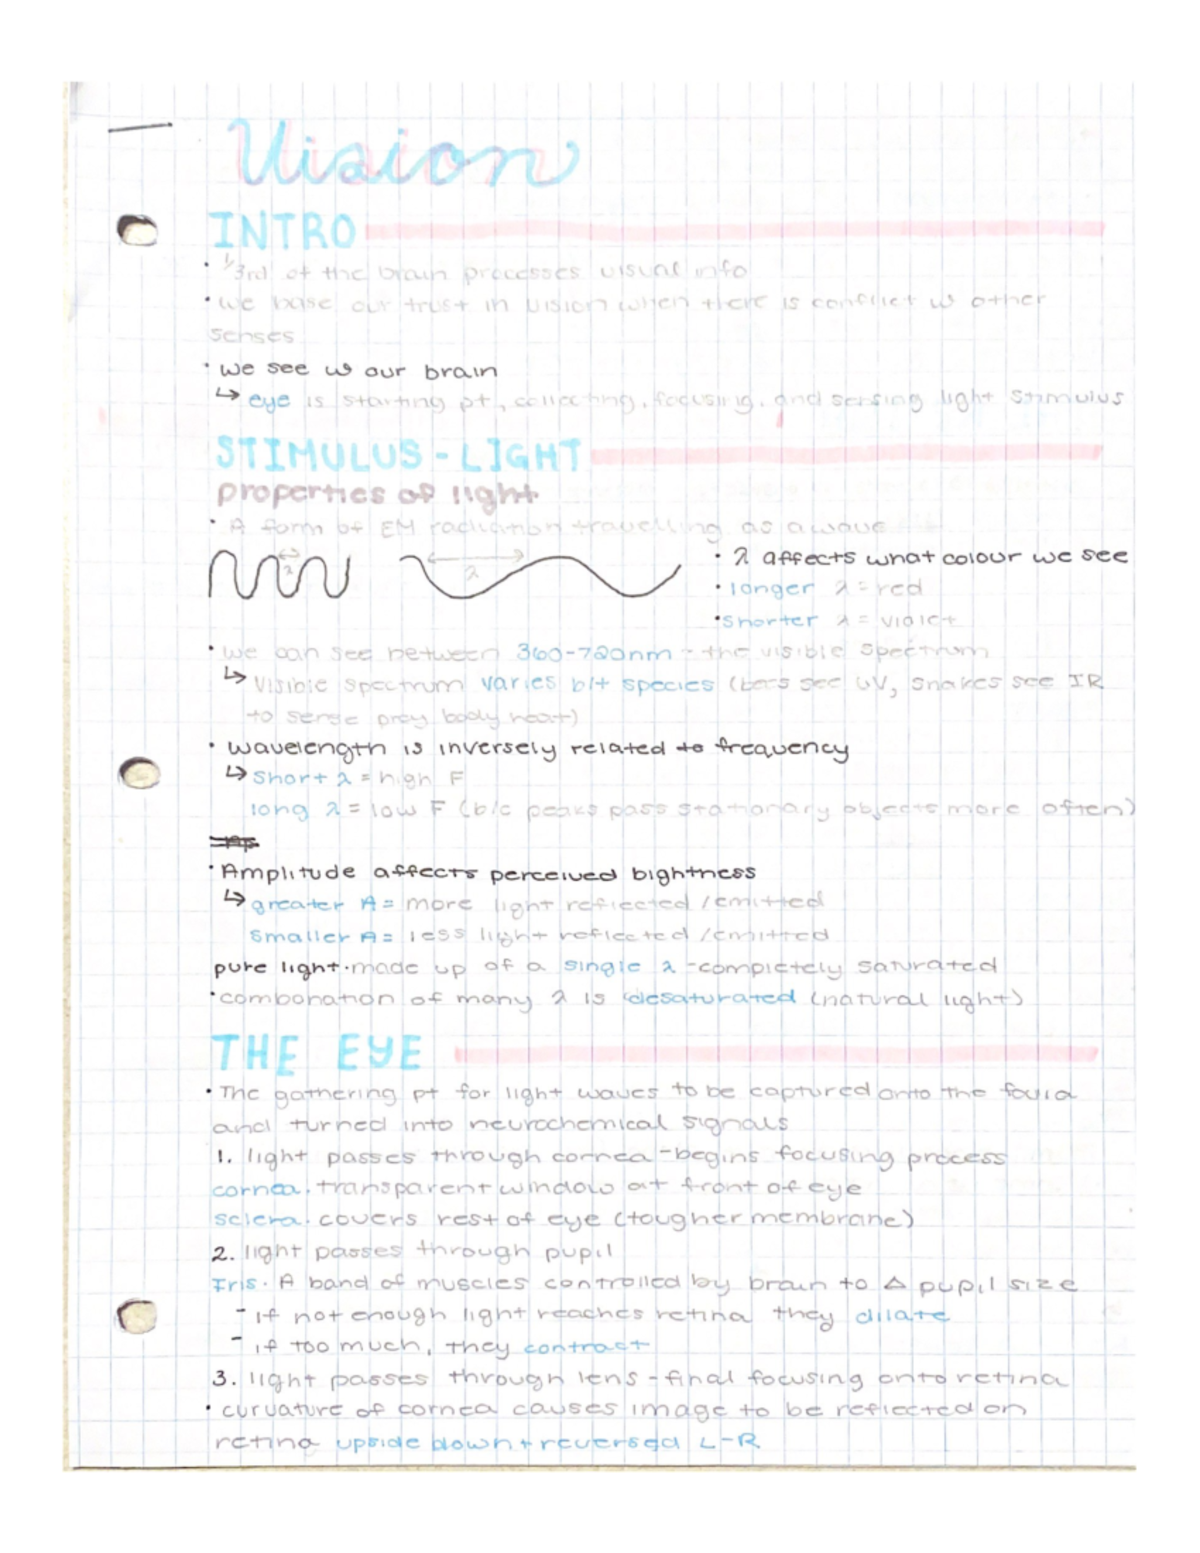 Vision
INTRO
· 1/3rd of the brain processes visual info
· we base our trust in vision when there is conflict w other
senses
· we see w our brain
↳ eye is starting pt, collecting, focusing, and sensing light stimulus
STIMULUS - LIGHT
properties of light
· A form of EM radiation travelling as a wave
λ λ · λ affects what colour we see
· longer λ = red
· shorter λ = violet
· we can see between 360-720nm - the visible spectrum
↳ visible spectrum varies b/t species (bees see UV, snakes see IR
to sense prey body heat)
· wavelength is inversely related to frequency
↳ short λ = high F
long λ = low F (b/c peaks pass stationary objects more often)
· Amplitude affects perceived bightness
↳ greater A = more light reflected / emitted
smaller A = less light reflected / emitted
pure light · made up of a single λ - completely saturated
· combonation of many λ is desaturated (natural light)
THE EYE
· The gathering pt for light waves to be captured onto the fovia
and turned into neurochemical signals
1. light passes through cornea - begins focusing process
cornea · transparent window at front of eye
sclera · covers rest of eye (tougher membrane)
2. light passes through pupil
Iris · A band of muscles controlled by brain to Δ pupil size
- if not enough light reaches retina they dilate
- if too much, they contract
3. light passes through lens - final focusing onto retina
· curvature of cornea causes image to be reflected on
retina upside down + reversed L-R